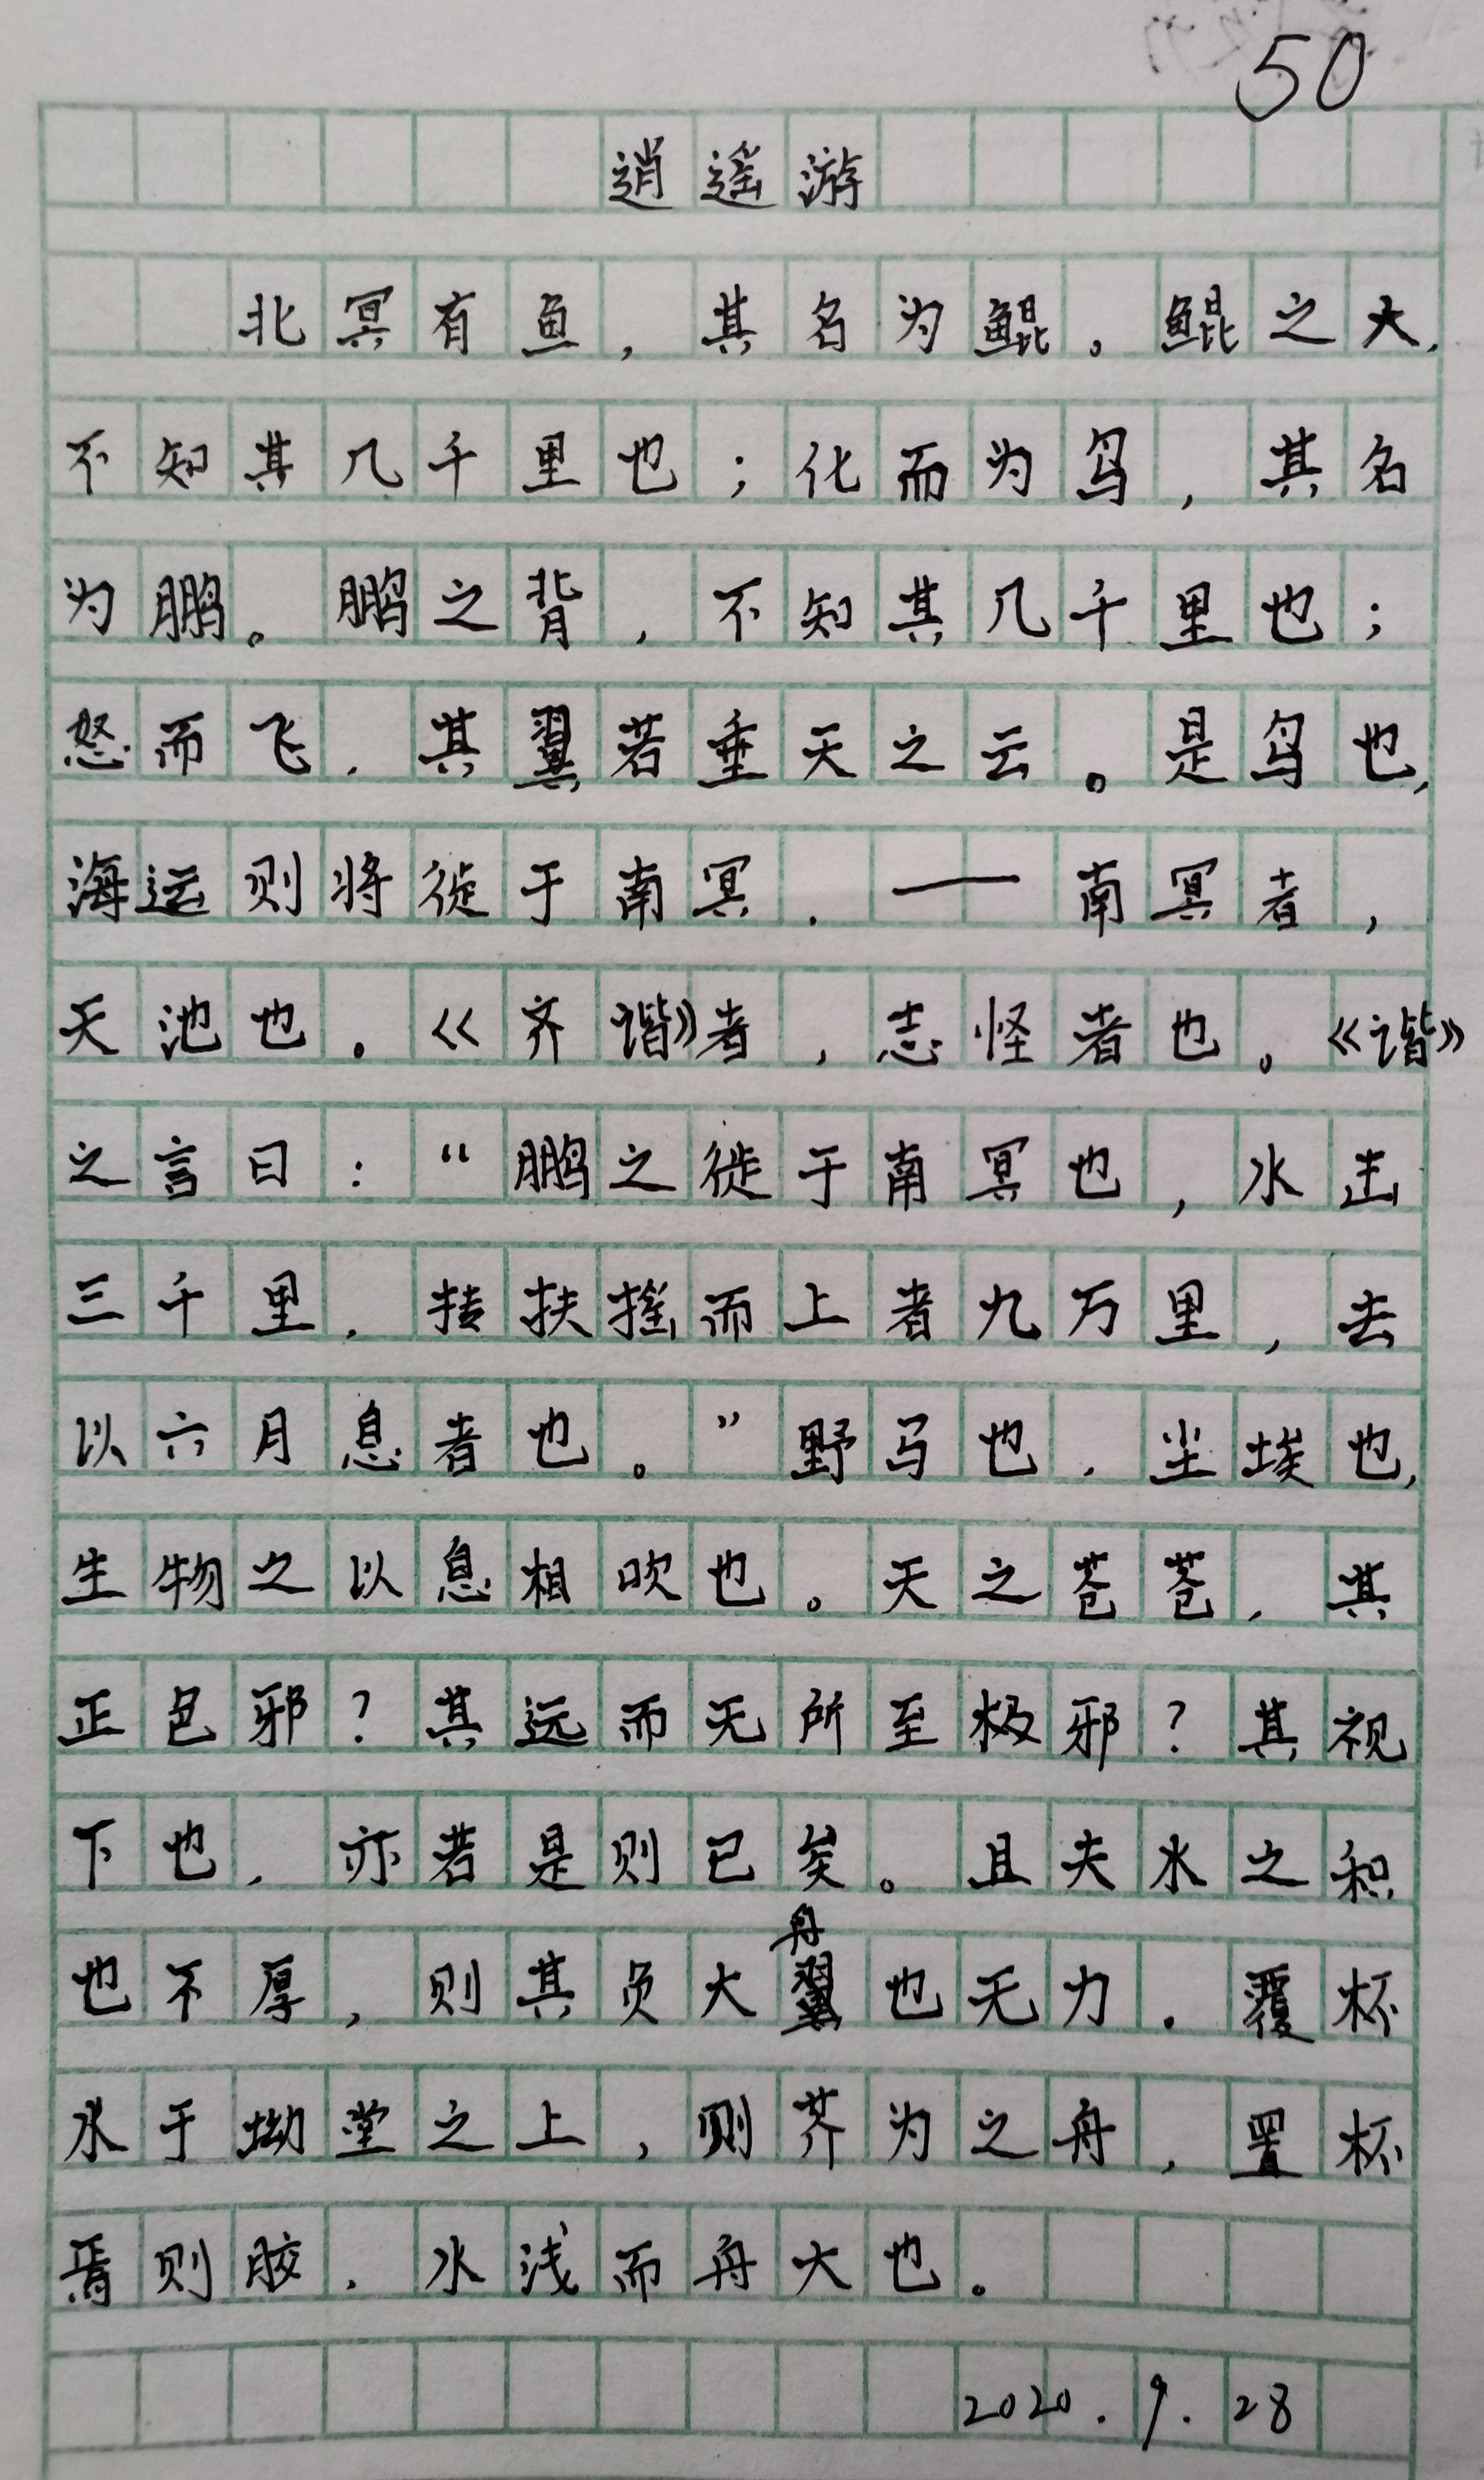 50
逍遥游
北冥有鱼，其名为鲲。鲲之大，
不知其几千里也；化而为鸟，其名
为鹏。鹏之背，不知其几千里也；
怒而飞，其翼若垂天之云。是鸟也，
海运则将徙于南冥，——南冥者，
天池也。《齐谐》者，志怪者也。《谐》
之言曰：“鹏之徙于南冥也，水击
三千里，抟扶摇而上者九万里，去
以六月息者也。”野马也，尘埃也，
生物之以息相吹也。天之苍苍，其
正色邪？其远而无所至极邪？其视
下也，亦若是则已矣。且夫水之积
舟
也不厚，则其负大翼也无力。覆杯
水于坳堂之上，则芥为之舟，置杯
焉则胶，水浅而舟大也。
2020.9.28